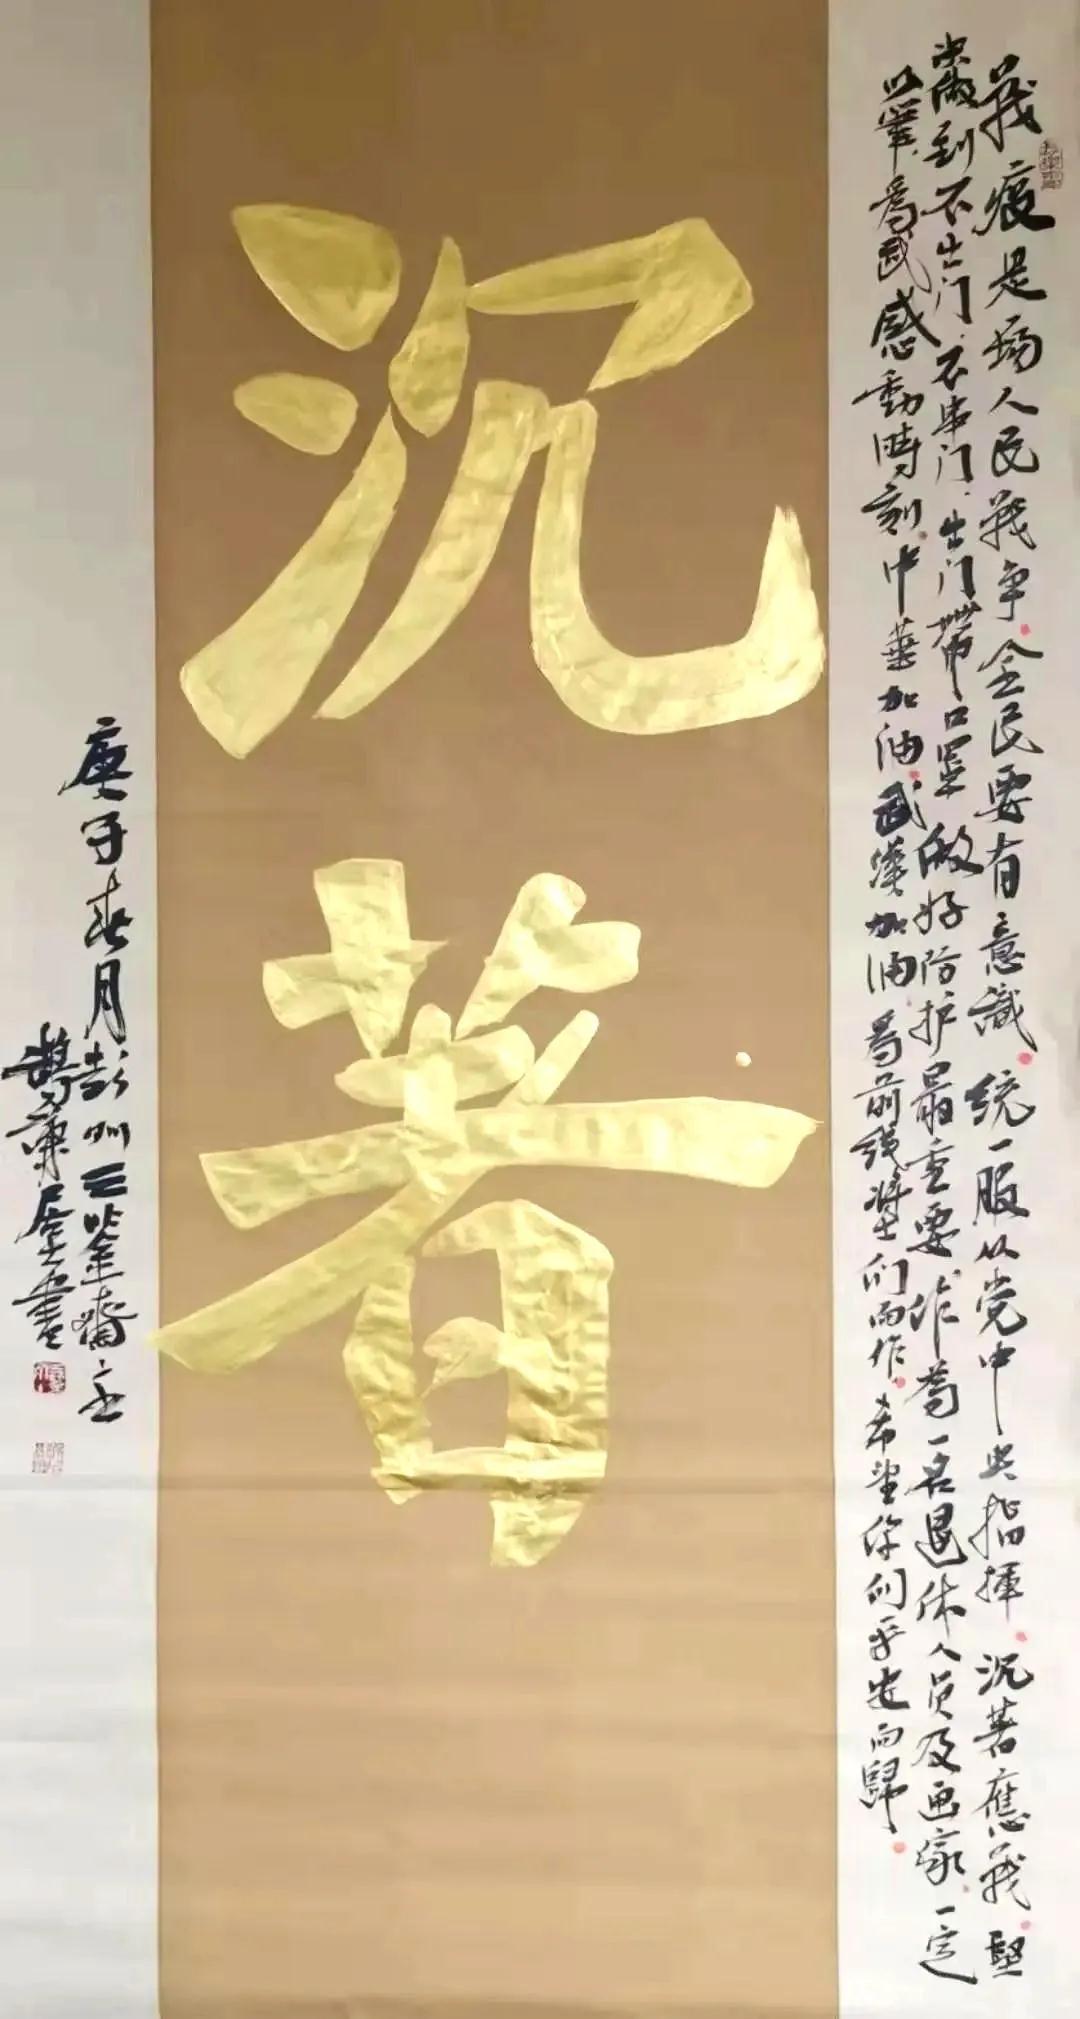 沉著
戰疫是場人民戰爭全民要有意識统一服从党中央指揮沉著應戰堅
决做到不出门不串门出门帶口罩做好防护最重要作為一名退休人员及画家一定
以筆為武感動時刻中華加油武漢加油為前线將士们而作希望你们平安而歸
庚子春月彭州三
書